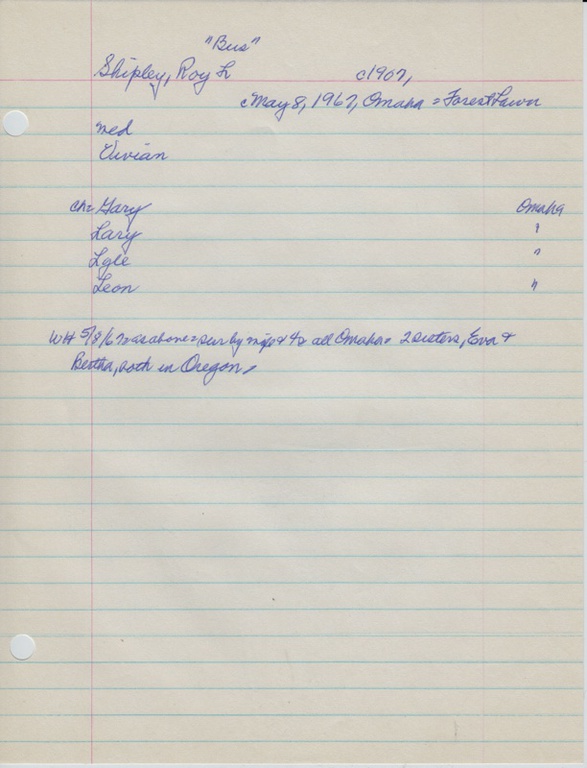 "Bus"
Shipley, Roy L c1907,
cMay 8, 1967, Omaha = Forest Lawn
med
Vivian
ch= Gary Omaha
Lary "
Lyle "
Leon "
WH 5/8/67 = as above = sur by w/o & 4s all Omaha = 2 sisters, Eva &
Bertha, both in Oregon,